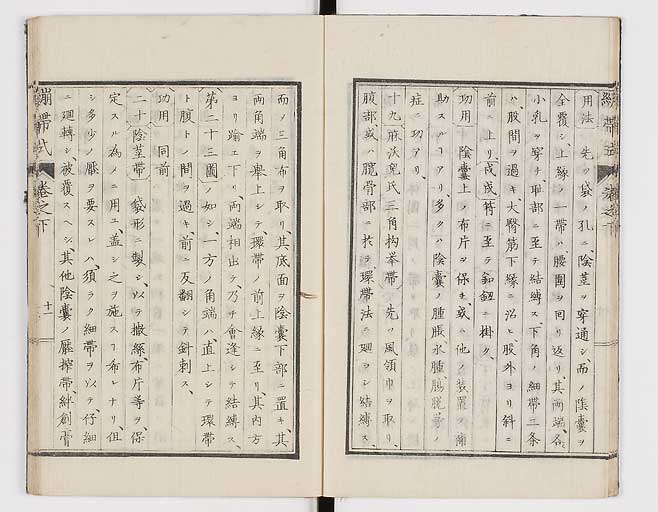 用法 先ツ袋ノ孔ニ、陰莖ヲ穿通シ、而ノ陰嚢ヲ
全覆シ、上縁ノ一帶ハ、腰圍ヲ回リ返リ、其両端各
小乳ヲ穿チ 部ニ至テ結縛ス下角ノ細帶二条
ハ、股間ヲ過キ、大臀筋下縁ニ沿ヒ股外ヨリ斜ニ
前ニ上リ、 ニ至テ釦鈕ニ掛ク、
功用 陰嚢上ノ布片ヲ保モ、或ハ他ノ装置ヲ補
助スルコアリ、多クハ陰嚢ノ腫脹、水腫、腸脱等ノ
症ニ功アリ、
十九 麻沃児氏三角拘挙帶 先ツ風領巾ヲ取リ、
腹部或ハ髖骨部ニ於テ環帶法ニ廻ラシ結縛ス、
繃帶式 巻之下
而ノ三角布ヲ取リ、其底面ヲ陰嚢下部ニ置キ、其
両角端ヲ挙上シテ、環帶ノ前上縁ニ至リ、其内方
ヨリ踰エ下リ、両端相出テ、乃チ會逢シテ結縛ス、
第二十三圖ノ如シ、一方ノ角端ハ、直上シテ環帶
ト腹トノ間ヲ過キ、前ニ反翻シテ針刺ス、
功用 同前
二十 陰莖帶 袋形ニ製シ、以テ撒絲、布片等ヲ、保
定スルハ為ノニ用エ、盖シ之ヲ施スヿ布レナリ、但
シ多少ノ壓ヲ要スレハ、須ラク細帶ヲ以テ、仔細
ニ廻轉シ、被覆スヘシ、其他陰嚢ノ壓搾帶、絆創膏
繃帶式 巻之下 十二